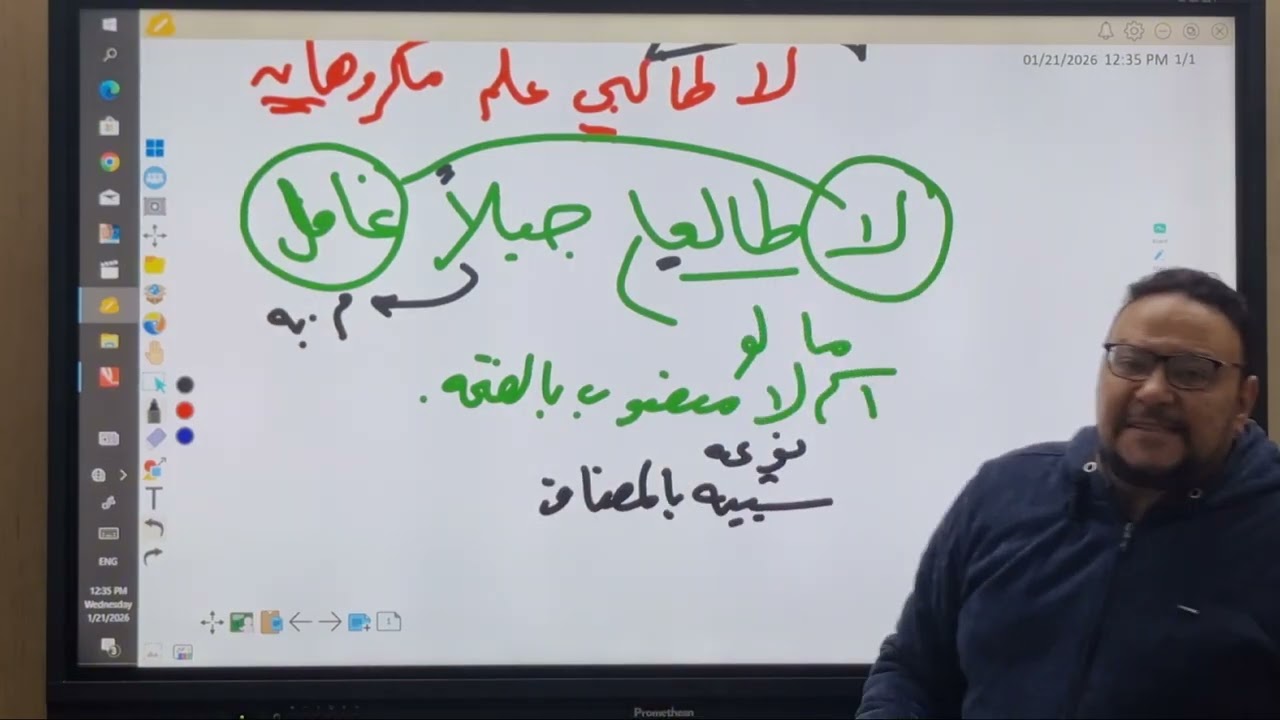 01/21/2026 12:35 PM 1/1
لا طالبي علم مكروهان
لا طالعا جبلاً غافل
م. به
ما لو
اسم لا منصوب بالفتحه.
نوعه
شبيه بالمضاف
ENG
12:35 PM
Wednesday
1/21/2026
Promethean